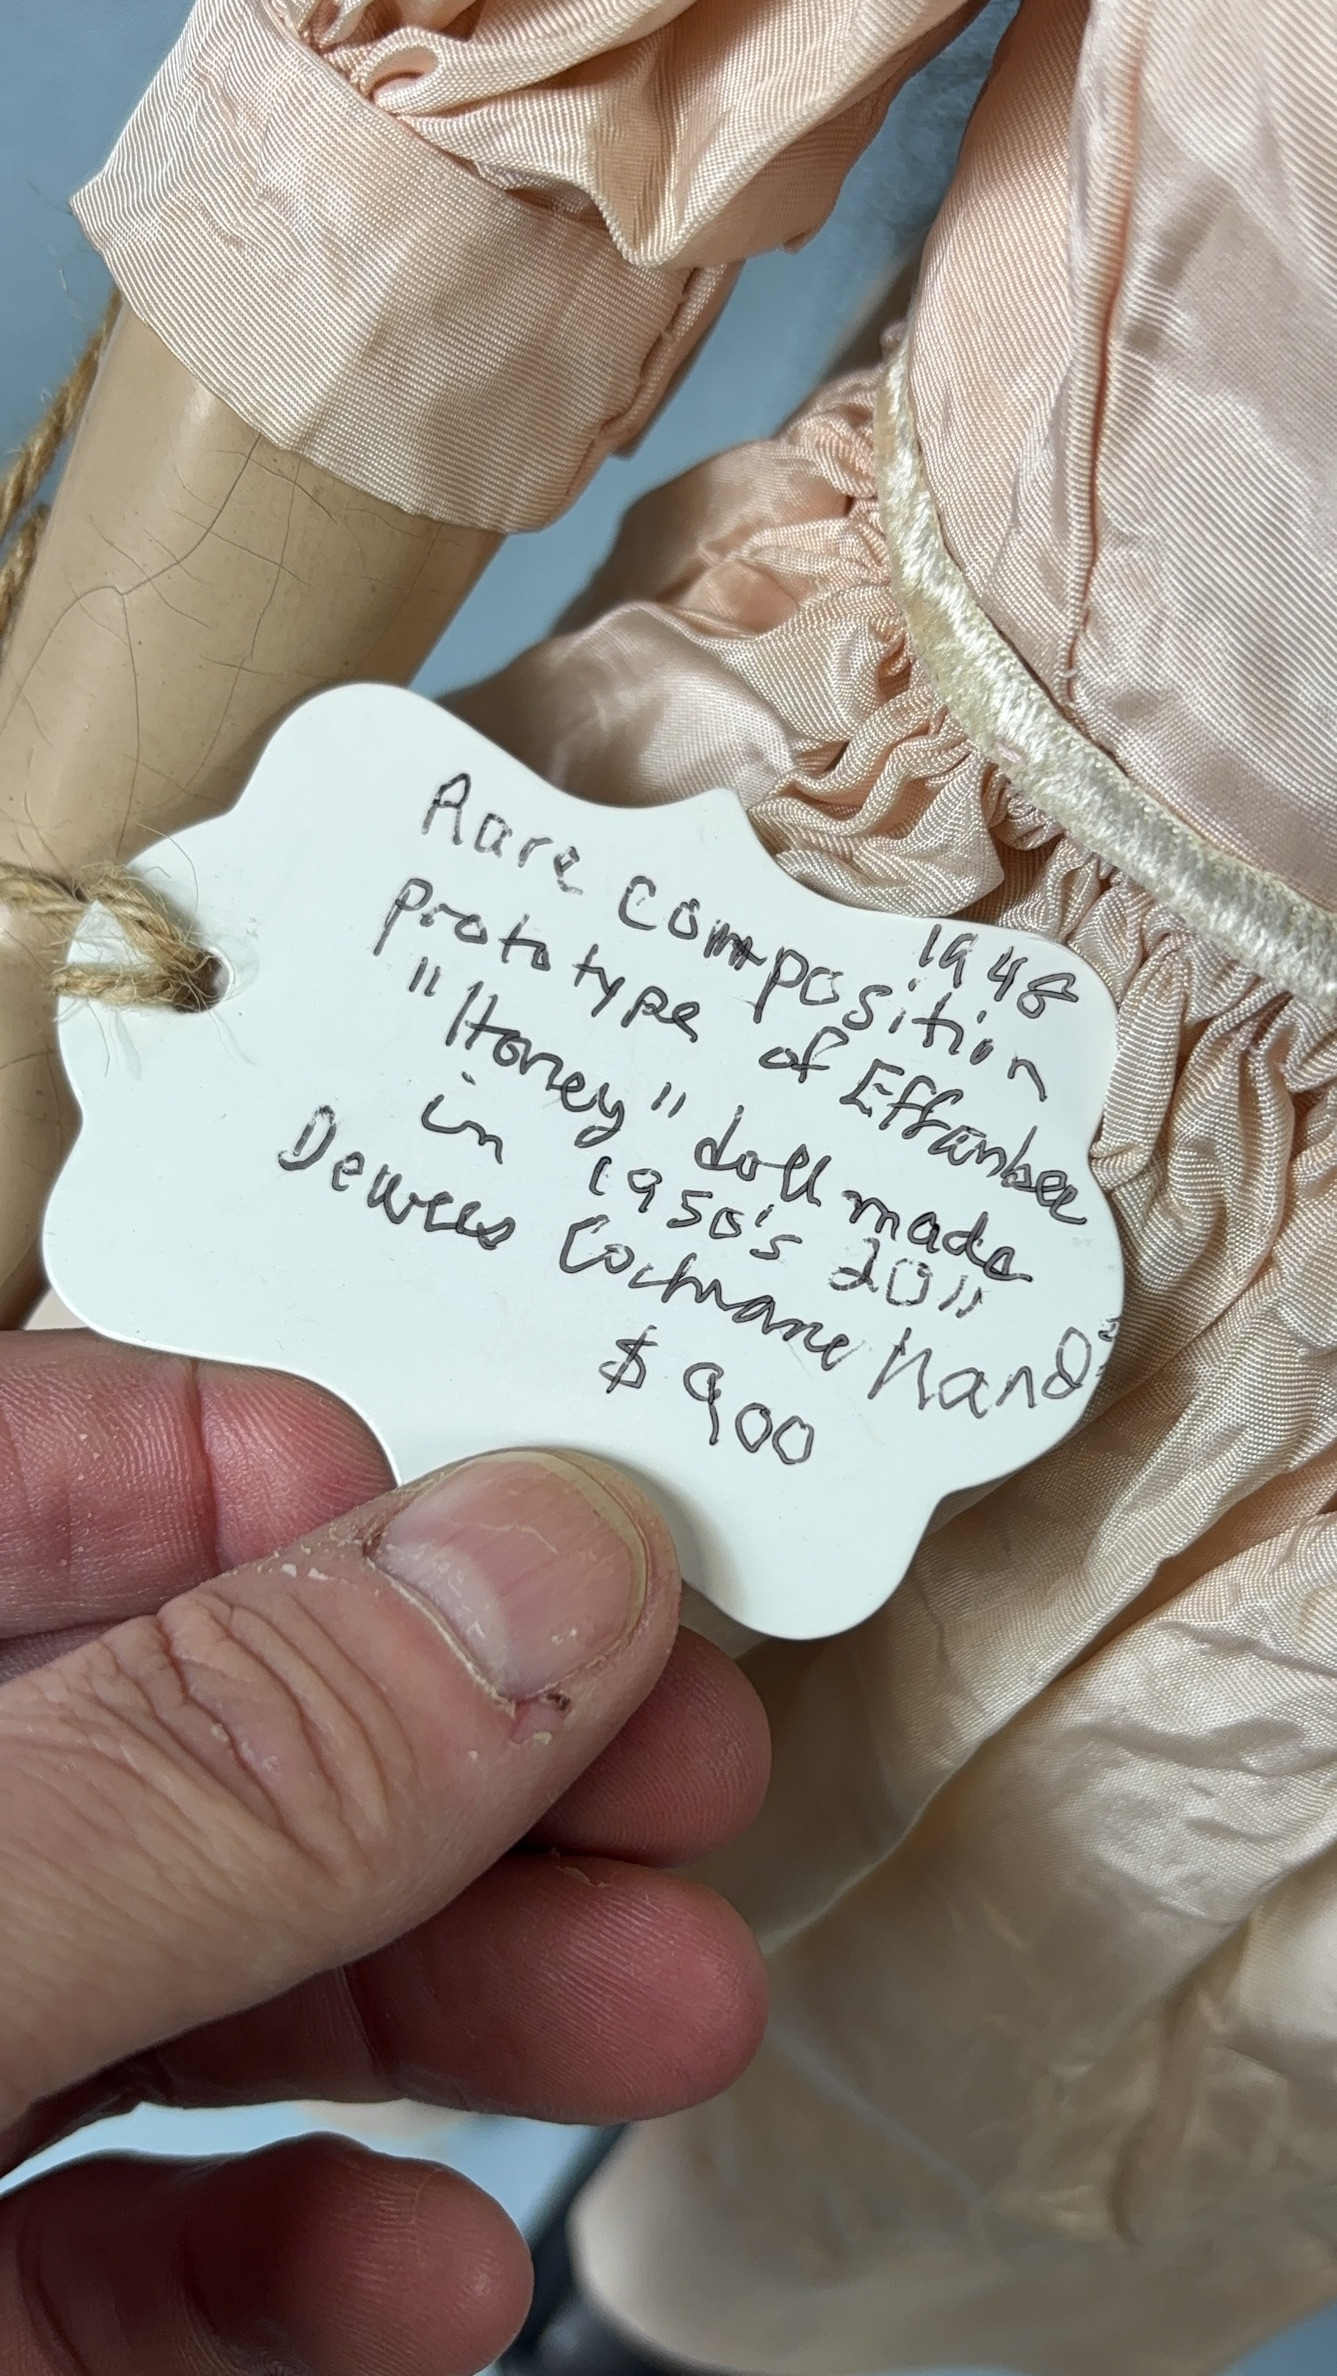 Rare composition 1948
prototype of Effanbee
"Honey" doll made
in 1950's 20"
Dewees Cochrane hand
$900